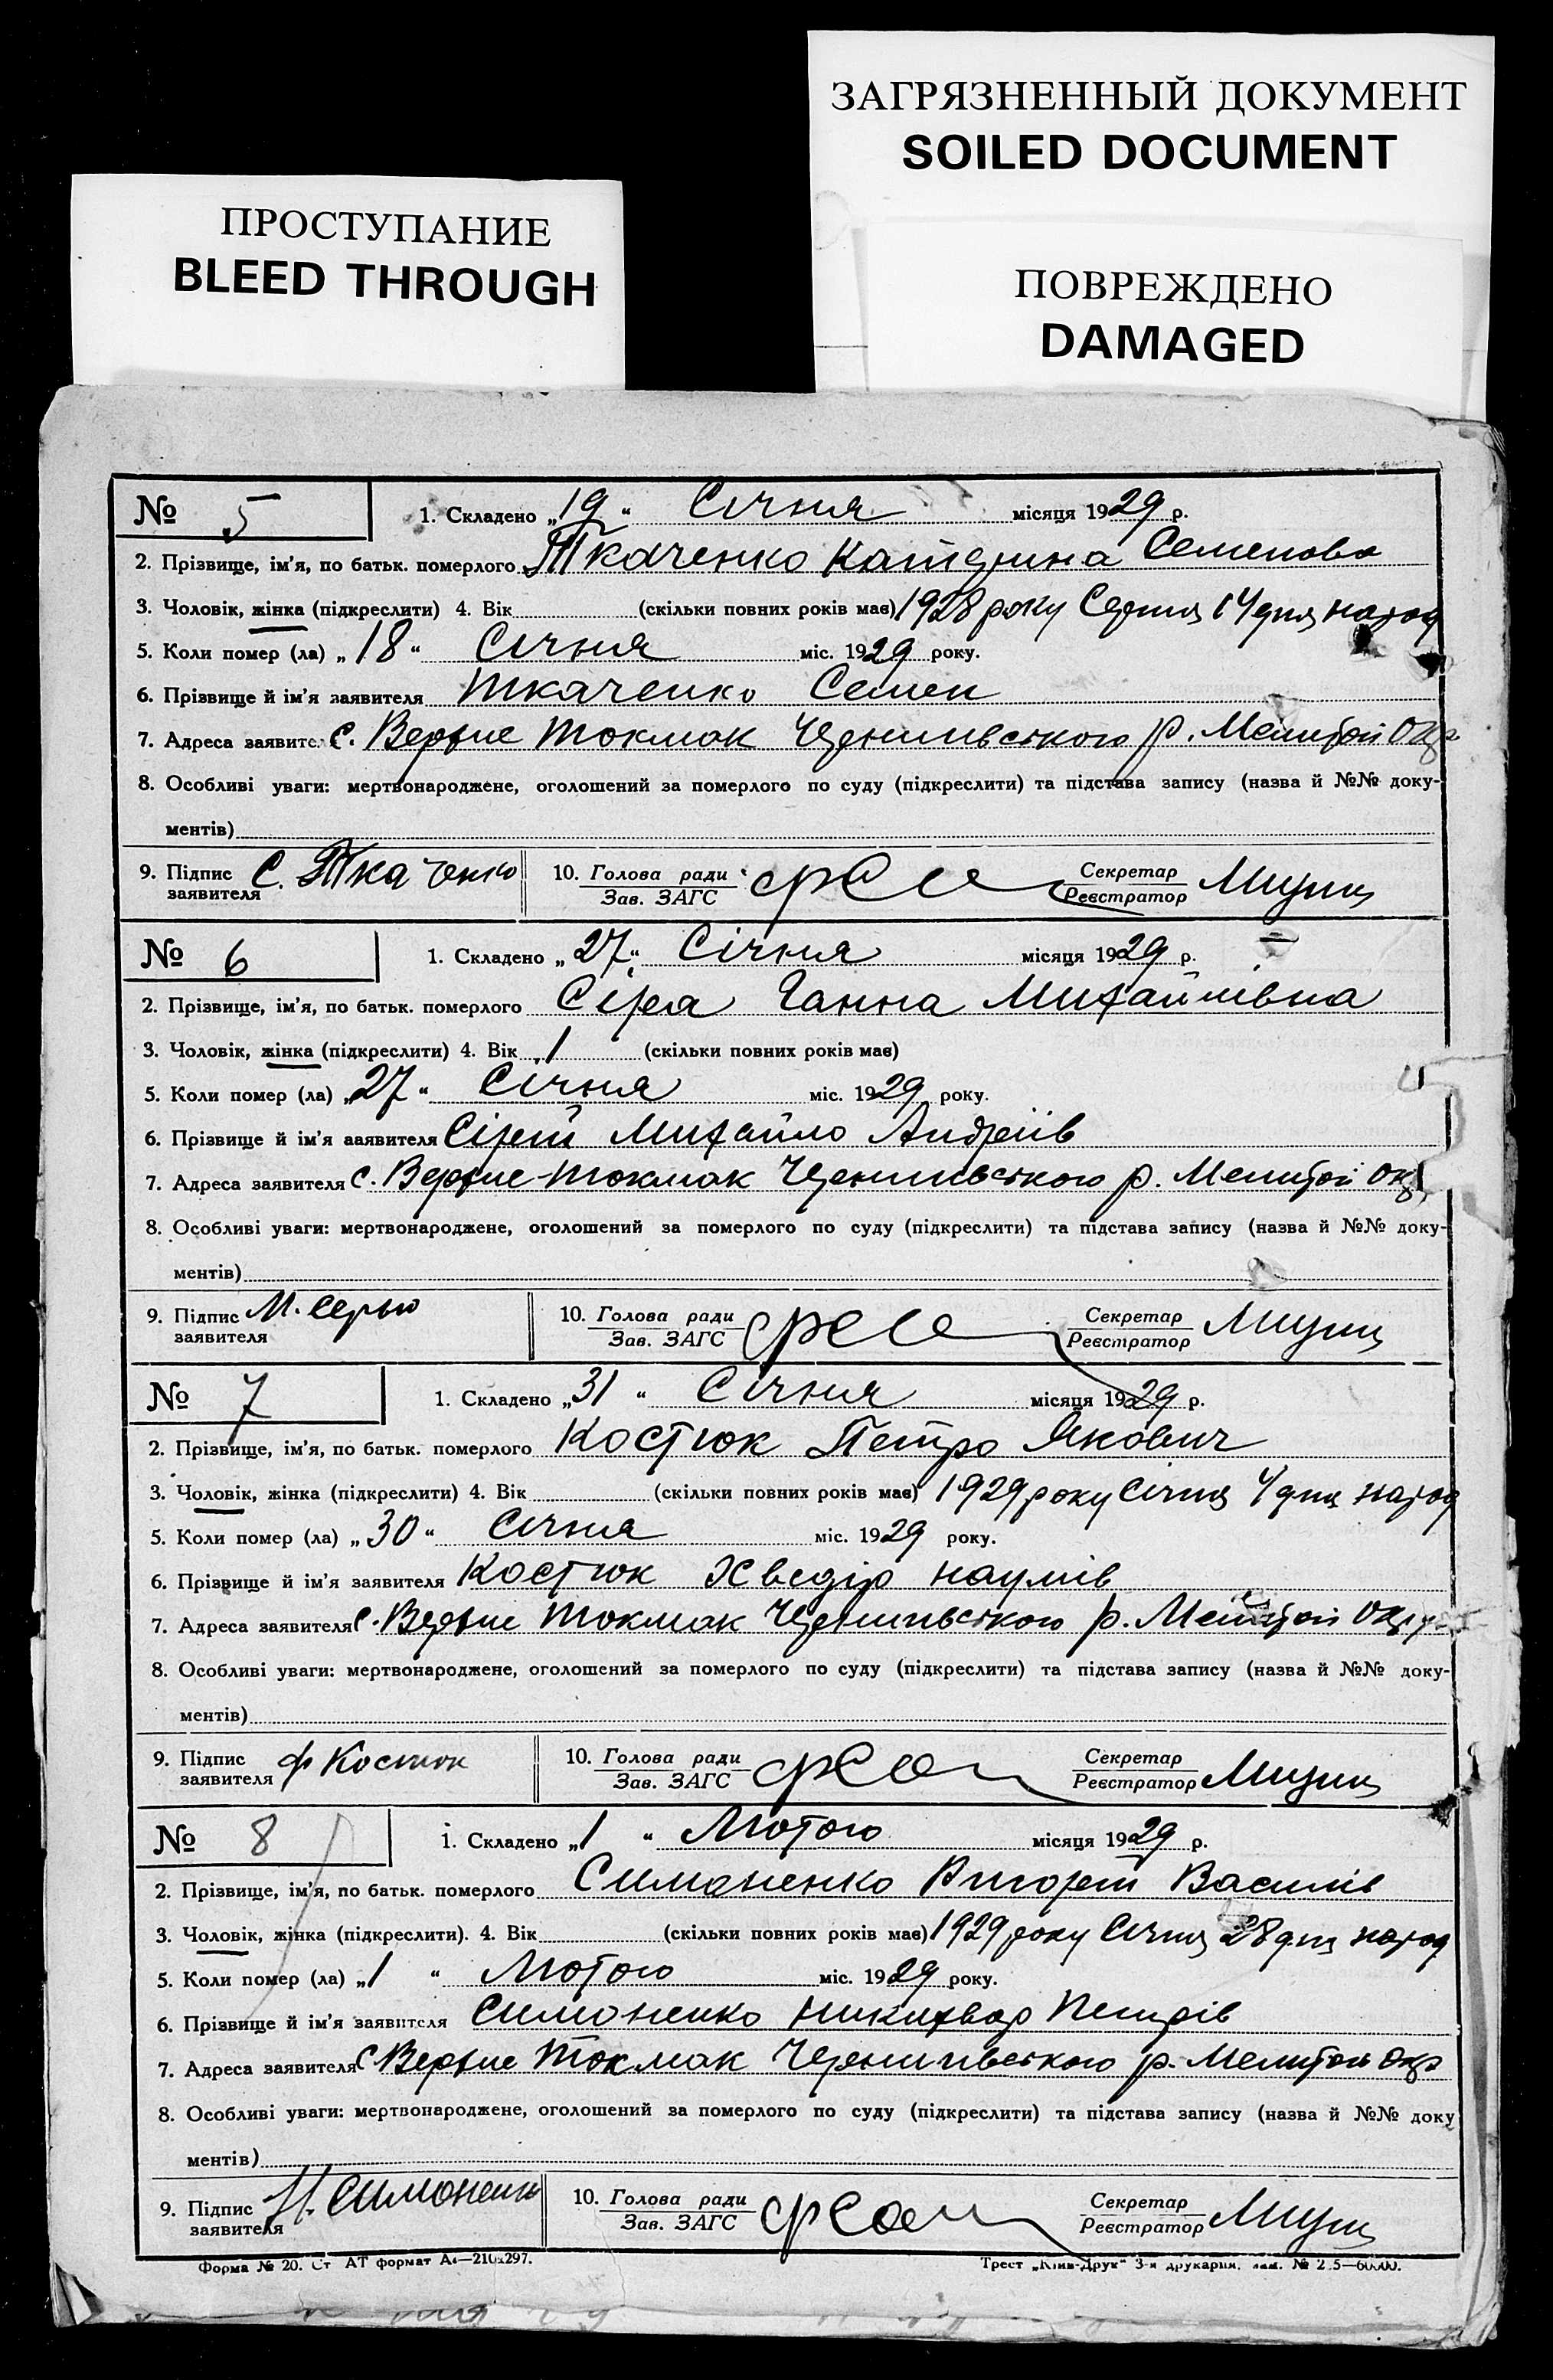 ЗАГРЯЗНЕННЫЙ ДОКУМЕНТ
SOILED DOCUMENT
ПРОСТУПАНИЕ
BLEED THROUGH
ПОВРЕЖДЕНО
DAMAGED
№ 5 1. Складено „19“ Січня місяця 1929 р.
2. Прізвище, ім'я, по батьк. померлого Ткаченко Катерина Семенова
3. Чоловік, жінка (підкреслити) 4. Вік (скільки повних років має) 1928 року Серпня 14 дня народ
5. Коли помер (ла) „18“ Січня міс. 1929 року.
6. Прізвище й ім'я заявителя Ткаченко Семен
7. Адреса заявите С. Верхне Токмак Чернигивського р. Мелитой Окр
8. Особливі уваги: мертвонароджене, оголошений за померлого по суду (підкреслити) та підстава запису (назва й №№ доку-
ментів)
9. Підпис заявителя С. Ткаченко 10. Голова ради Зав. ЗАГС Секретар Реєстратор
№ 6 1. Складено „27“ Січня місяця 1929 р.
2. Прізвище, ім'я, по батьк. померлого Сіра Ганна Михайлівна
3. Чоловік, жінка (підкреслити) 4. Вік 1 (скільки повних років має)
5. Коли помер (ла) „27“ Січня міс. 1929 року.
6. Прізвище й ім'я заявителя Сірий Михайло Андріїв
7. Адреса заявителя с. Верхне-Токмак Чернигивського р. Мелитой Окр
8. Особливі уваги: мертвонароджене, оголошений за померлого по суду (підкреслити) та підстава запису (назва й №№ доку-
ментів)
9. Підпис заявителя М. 10. Голова ради Зав. ЗАГС Секретар Реєстратор
№ 7 1. Складено „31“ Січня місяця 1929 р.
2. Прізвище, ім'я, по батьк. померлого Костюк Петро Якович
3. Чоловік, жінка (підкреслити) 4. Вік (скільки повних років має) 1929 року Січня 4 дня народ
5. Коли помер (ла) „30“ Січня міс. 1929 року.
6. Прізвище й ім'я заявителя Костюк Хведір Наумів
7. Адреса заявителя С. Верхне Токмак Чернигивського р. Мелитой Окр
8. Особливі уваги: мертвонароджене, оголошений за померлого по суду (підкреслити) та підстава запису (назва й №№ доку-
ментів)
9. Підпис заявителя Ф Костюк 10. Голова ради Зав. ЗАГС Секретар Реєстратор
№ 8 1. Складено „1“ Лютого місяця 1929 р.
2. Прізвище, ім'я, по батьк. померлого Симоненко Василів
3. Чоловік, жінка (підкреслити). 4. Вік (скільки повних років має) 1929 року Січня 28 дня народ
5. Коли помер (ла) „1“ Лютого міс. 1929 року.
6. Прізвище й ім'я заявителя Симоненко Никихвор Петрів
7. Адреса заявителя С Верхне Токмак Чернигивського р. Мелитой Окр
8. Особливі уваги: мертвонароджене, оголошений за померлого по суду (підкреслити) та підстава запису (назва й №№ доку
ментів)
9. Підпис заявителя Н. Симоненко 10. Голова ради Зав. ЗАГС Секретар Реєстратор
Форма № 20. Ст АТ формат А4—210х297. Трест „Київ-Друк“ 3-я друкарня.